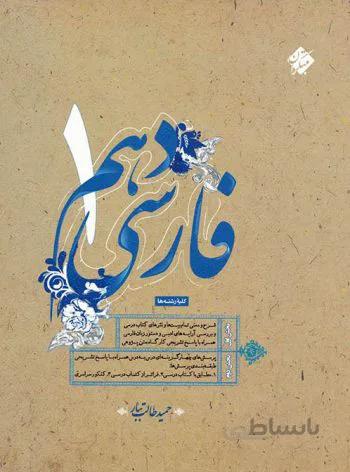 مبتکران
فارسی دهم ۱
کلیهٔ رشته‌ها
بخش اول
شرح و معنی تمام بیت‌ها و نثرهای کتاب درسی
و بررسی آرایه‌های ادبی و دستور زبان فارسی
همراه با پاسخ تشریحی کارگاه متن پژوهی
بخش دوم
پرسش‌های چهارگزینه‌ای درس به درس همراه با پاسخ تشریحی
طبقه‌بندی پرسش‌ها:
۱. مطابق با کتاب درسی ۲. فراتر از کتاب درسی ۳. کنکور سراسری
حمید طالب‌تبار
باساطی